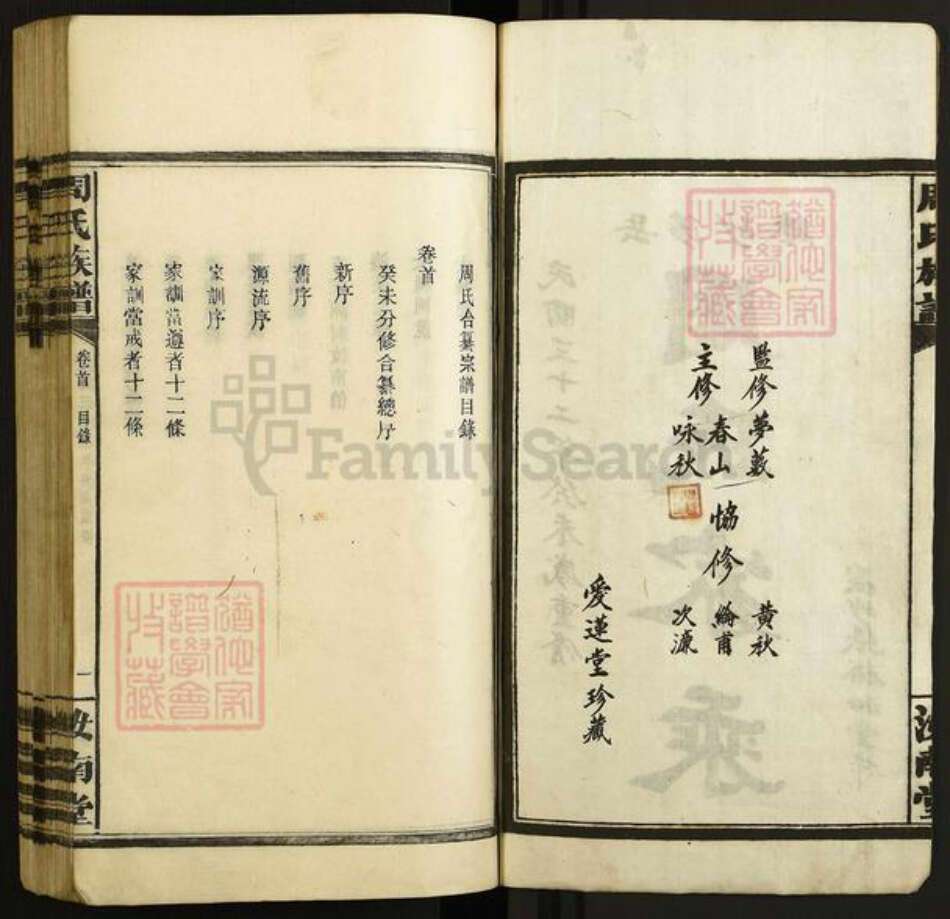 周氏族譜
汝南堂
監修 夢薮
主修 春山
咏秋
恊修 黄秋
綸甫
次濂
愛蓮堂珍藏
猶他家
譜學會
收藏
周氏合纂宗譜目錄
卷首
癸未分修合纂總序
新序
舊序
源流序
家訓序
家訓當遵者十二條
家訓當戒者十二條
周氏族譜
卷首
目錄
一
汝南堂
猶他家
譜學會
收藏
FamilySearch